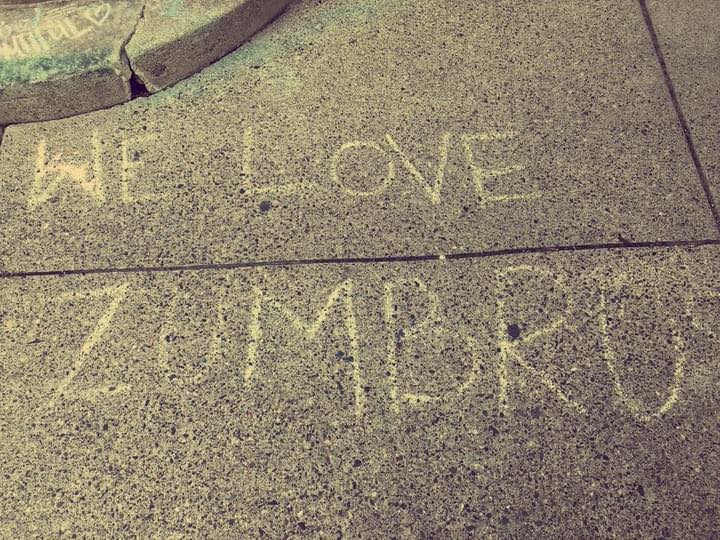 WE LOVE
ZUMBRU